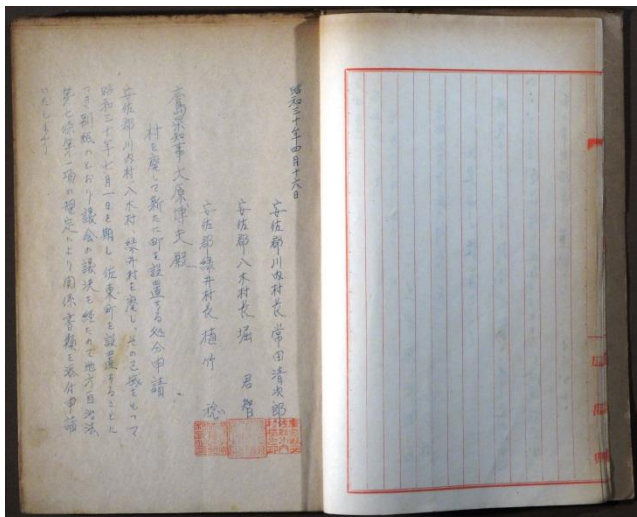 昭和三十年四月十六日
安佐郡川内村長 常田清次郎
安佐郡八木村長 堀 君智
安佐郡緑井村長 植竹 稔
広島県知事大原博夫殿
村を廃して新たに町を設置する処分申請
安佐郡川内村、八木村、緑井村を廃し、その区域をもって
昭和三十年七月一日を期し佐東町を設置することに
つき別紙のとおり議会の議決を経たので地方自治法
第七条第一項の規定により関係書類を添付申請
いたします